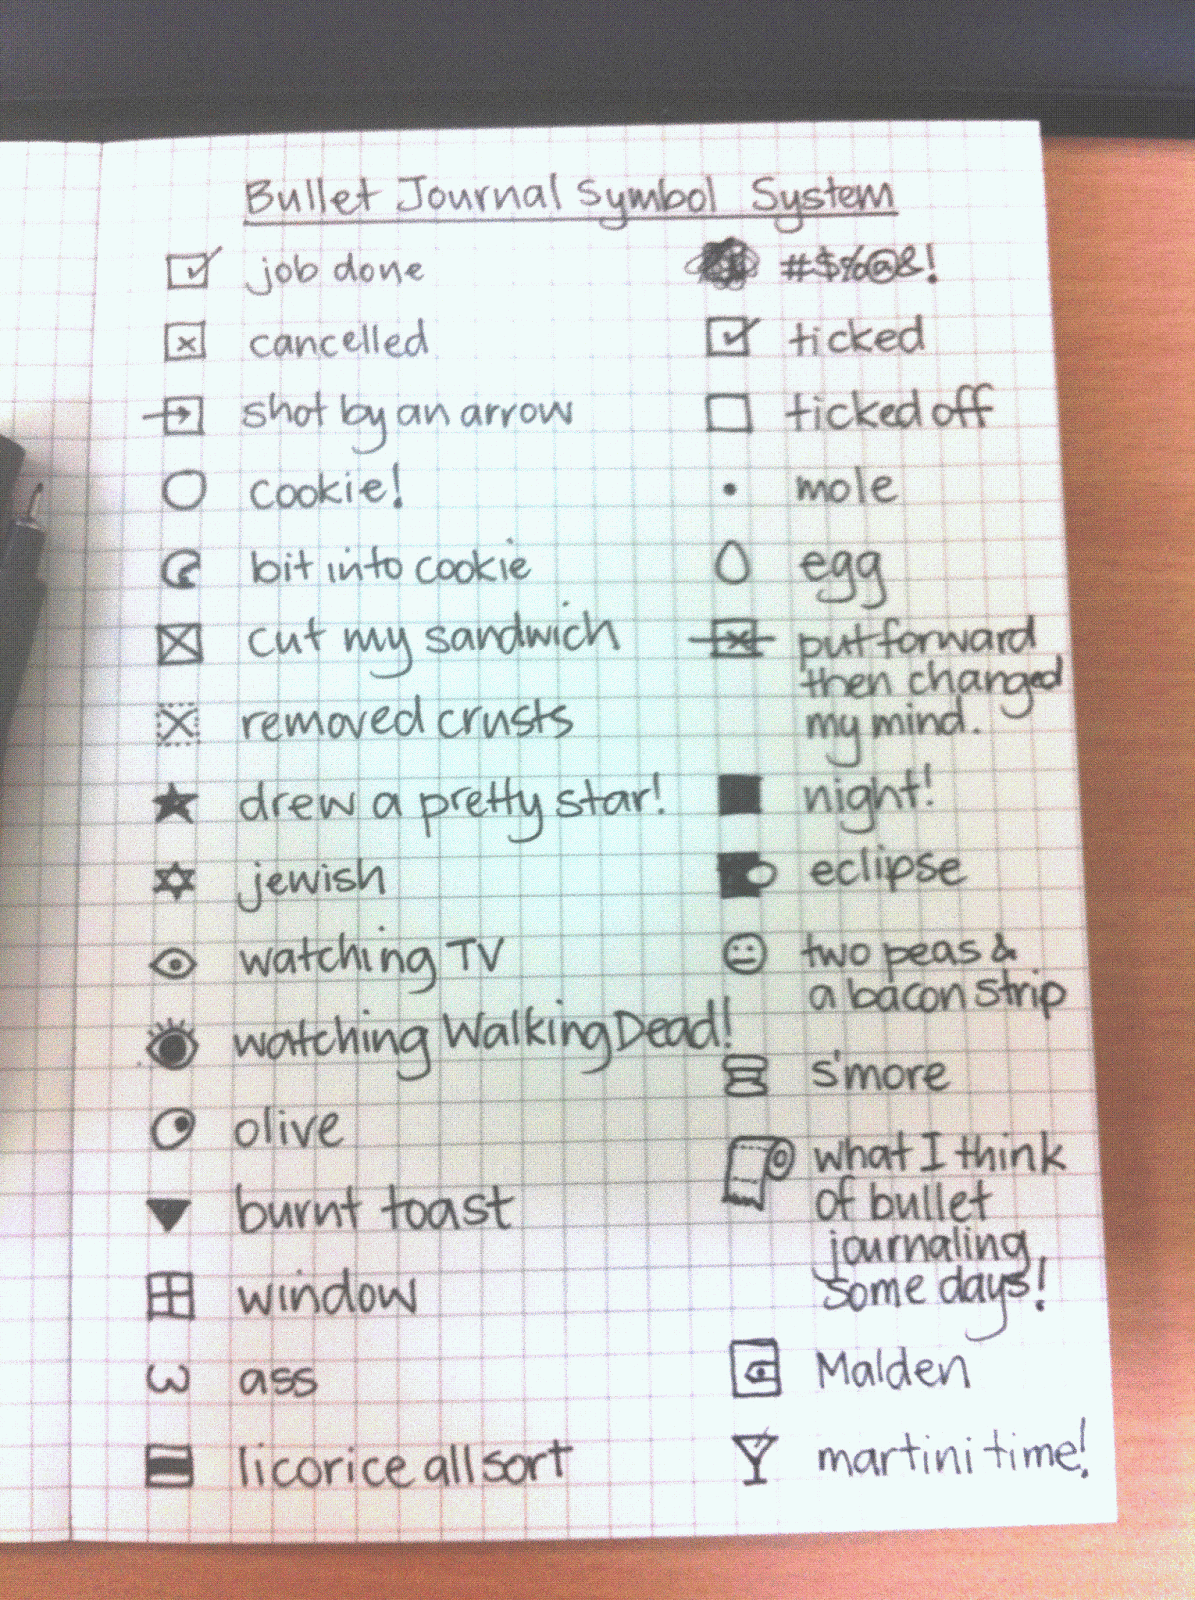 Bullet Journal Symbol System
job done
cancelled
shot by an arrow
cookie!
bit into cookie
cut my sandwich
removed crusts
drew a pretty star!
jewish
watching TV
watching Walking Dead!
olive
burnt toast
window
ass
licorice allsort
#$%@&!
ticked
ticked off
mole
egg
put forward
then changed
my mind.
night!
eclipse
two peas &
a bacon strip
s'more
what I think
of bullet
journaling
some days!
Malden
martini time!